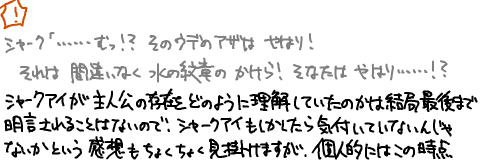 !
シャーク「……むっ!? そのウデのアザは やはり!
それは 間違いなく 水の紋章の かけら! そなたは やはり……!?
シャークアイが主人公の存在をどのように理解していたのかは結局最後まで
明言されることはないので、シャークアイもしかしたら気付いていないんじゃ
ないかという感想もちょくちょく見掛けますが、個人的にはこの時点